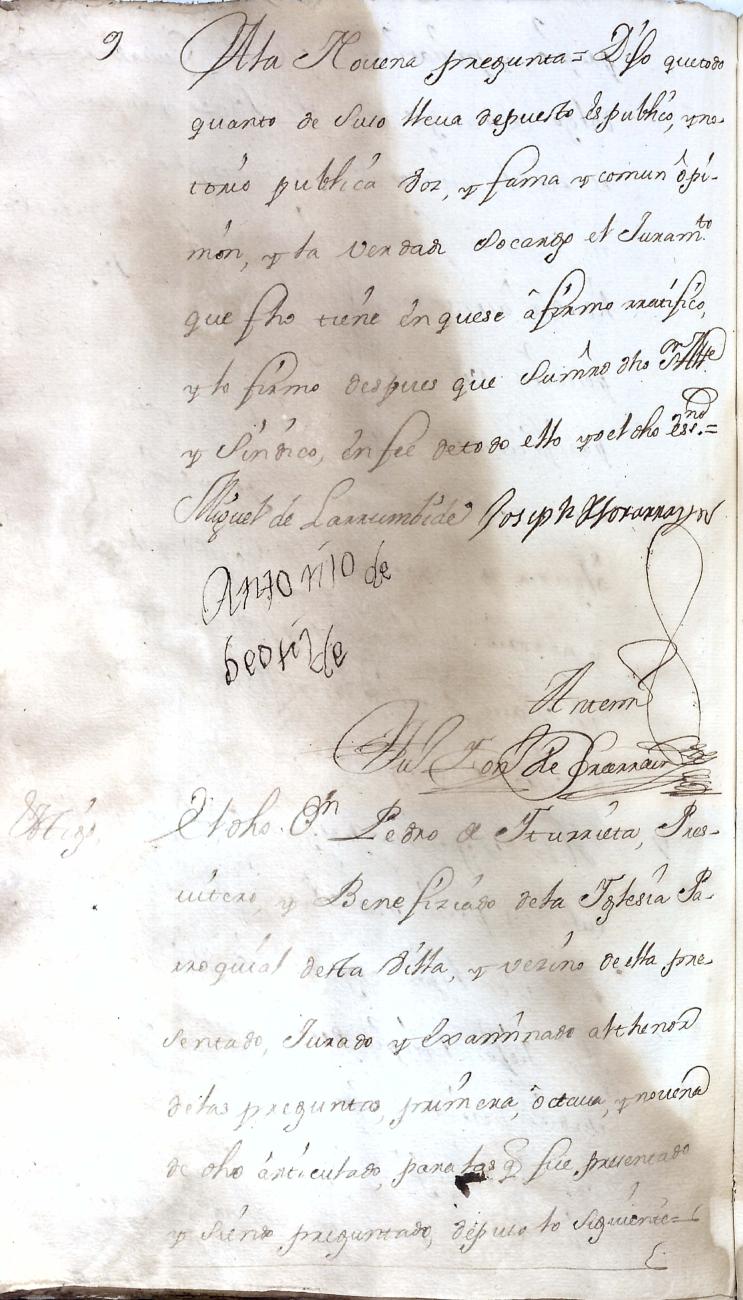 9 A la Novena pregunta = Dijo que todo
quanto de suso lleva depuesto és publico, y no-
torio publica voz, y fama y comun ôpi-
nión, y la verdad socargo el Juram.to
que fho tiene en que se âfirmo rratifico,
y lo firmo despues que Su mrd dho Thte
y Sindico, en fee de todo ello yo el dho ess.no =
Miguel de Larrumbide Joseph
Antonio de
Beotide
Antemi
de
Testigo. El dho Dn Pedro de Yturrieta, Pres-
vitero, y Benefiziado de la Yglesia Pa-
rroquial desta Villa, y vezino de ella pre-
sentado, Jurado y Examinado al thenor
de las preguntas, primera, ôctava, y novena
de dho ârticulado, para las q.e fue presentado
y siendo preguntado, depuso lo siguiente =